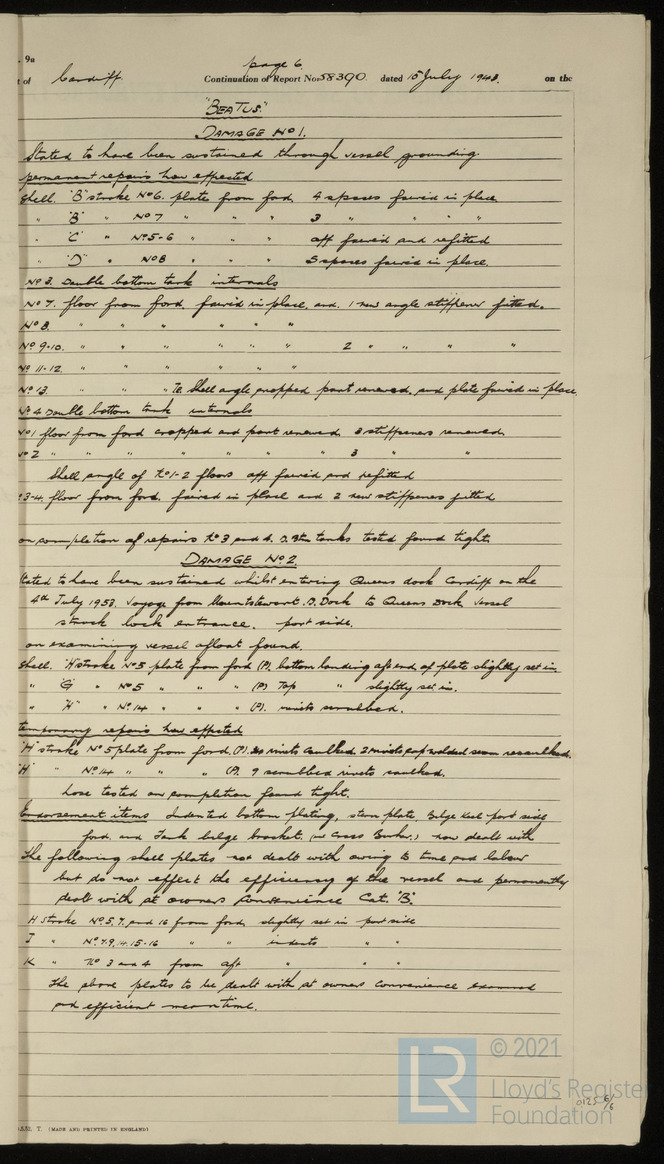 . 9a
page 6.
t of Cardiff. Continuation of Report No 58390. dated 15 July 1943. on the
"BEATUS."
DAMAGE No 1.
Stated to have been sustained through vessel grounding.
permanent repairs now effected
Shell. "B" strake No 6. plate from ford. 4 spaces faired in place
" "B" " No 7 " " " 3 " " " "
" "C" " No 5-6 " " " off faired and refitted
" "D" " No 8 " " " 5 spaces faired in place.
No 3. Double bottom tank internals
No 7. floor from ford. faired in place and. 1 new angle stiffener fitted.
No 8. " " " " " "
No 9-10. " " " " " " 2 " " " "
No 11-12. " " " " " "
No 13. " " " Shell angle cropped part renewed, and plate faired in place
No 4 Double bottom tank internals
No 1 floor from ford cropped and part renewed 3 stiffeners renewed.
No 2 " " " " " " " 3 " "
Shell angle of No 1-2 floors off faired and refitted
o 3-4. floor from ford. faired in place and 2 new stiffeners fitted
on completion of repairs No 3 and 4. D. Btm tanks tested found tight.
DAMAGE No 2
Stated to have been sustained whilst entering Queens dock Cardiff on the
4th July 1953. Voyage from Mountstewart. D. Dock to Queens Dock. Vessel
struck lock entrance. port side.
on examining vessel afloat found.
Shell. "H" strake No 5 plate from ford (P). bottom landing aft end of plate slightly set in
" "G" " No 5 " " " (P) Top " slightly set in.
" "H" " No 14 " " " (P). rivets scrubbed.
temporary repairs now effected
"H" strake No 5 plate from ford. (P). rivets caulked. 2 rivets welded seam recaulked.
"H" " No 14 " " " (P). 9 scrubbed rivets caulked.
hose tested on completion found tight.
Endorsement items Indented bottom plating, stern plate, Bilge Keel port side
ford. and Tank bilge bracket. (in Cross Bunker.) now dealt with
The following shell plates not dealt with owing to time and labour
but do not effect the efficiency of the vessel and permanently
dealt with at owners convenience Cat. "B".
H strake No 5, 7, and 16 from ford slightly set in port side
J " No 7. 9, 14. 15-16 " " indents " "
K " No 3 and 4 from aft " " "
The above plates to be dealt with at owners convenience examined
and efficient meantime.
T. (MADE AND PRINTED IN ENGLAND)
LR
© 2021
Lloyd's Register
Foundation
0125 6/6